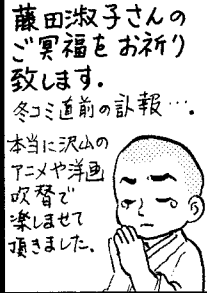 藤田淑子さんの
ご冥福をお祈り
致します.
冬コミ直前の訃報….
本当に沢山の
アニメや洋画
吹替で
楽しませて
頂きました.